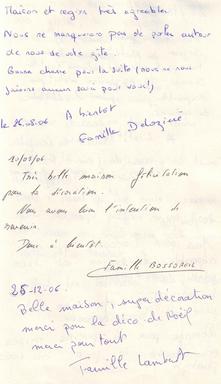 Maison et region très agréables.
Nous ne manquerons pas de parler autour
de nous de votre gîte.
Bonne chance pour la suite (nous ne nous
faisons aucun souci pour vous!)
A bientôt
le 26.08.06 Famille
10/09/06
Très belle maison félicitation
pour la décoration.
Nous avons bien l'intention de
revenir.
Donc à bientôt.
Famille
25-12-06.
Belle maison, super décoration
merci pour la déco de Noël
merci pour tout
Famille Lambert